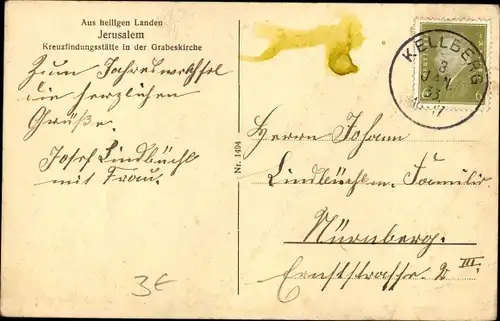 Aus heiligen Landen
Jerusalem
Kreuzfindungsstätte in der Grabeskirche
Zum Jahreswechsel
die herzlichen
Grüße.
Josef Lindbüchl
mit Frau.
3€
Nr. 1494
KELLBERG
8
JAN.
33
Herrn Johann
Lindbüchl m. Familie
Nürnberg.
Ernststrasse 2 III.